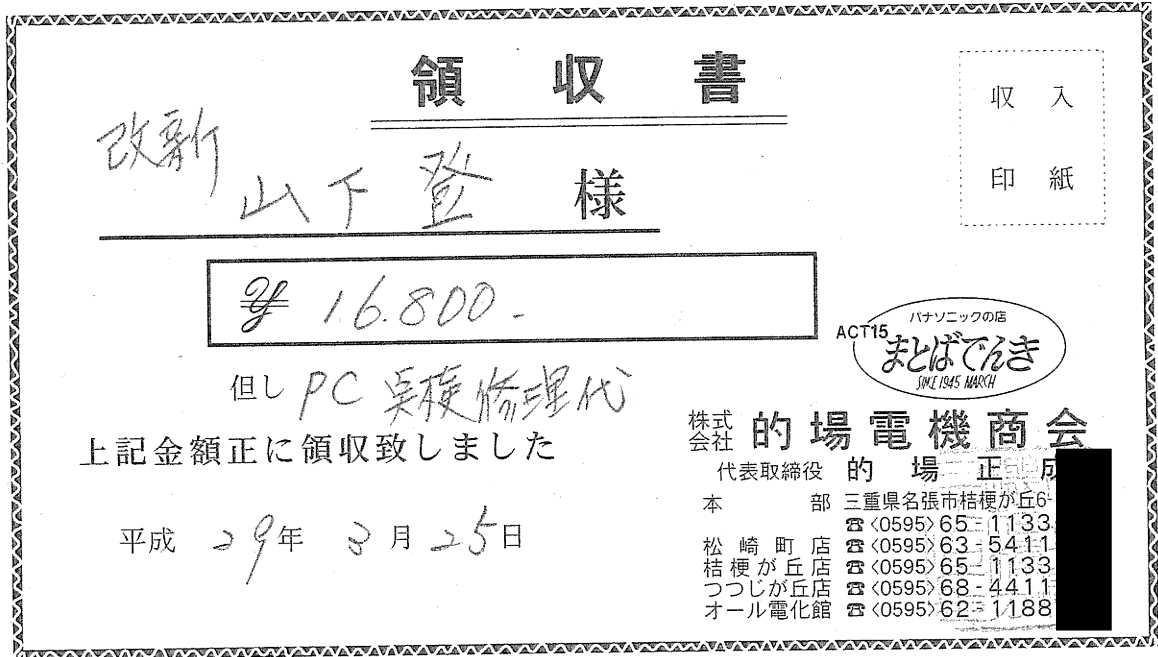 領収書
収入
印紙
改新
山下登 様
¥ 16.800-
但し PC 点検修理代
上記金額正に領収致しました
平成 29年 3月 25日
パナソニックの店
ACT15 まとばでんき
SINCE 1945 MARCH
株式会社 的場電機商会
代表取締役 的場正成
本部 三重県名張市桔梗が丘6-
☎〈0595〉65-1133
松崎町店 ☎〈0595〉63-5411
桔梗が丘店 ☎〈0595〉65-1133
つつじが丘店 ☎〈0595〉68-4411
オール電化館 ☎〈0595〉62-1188